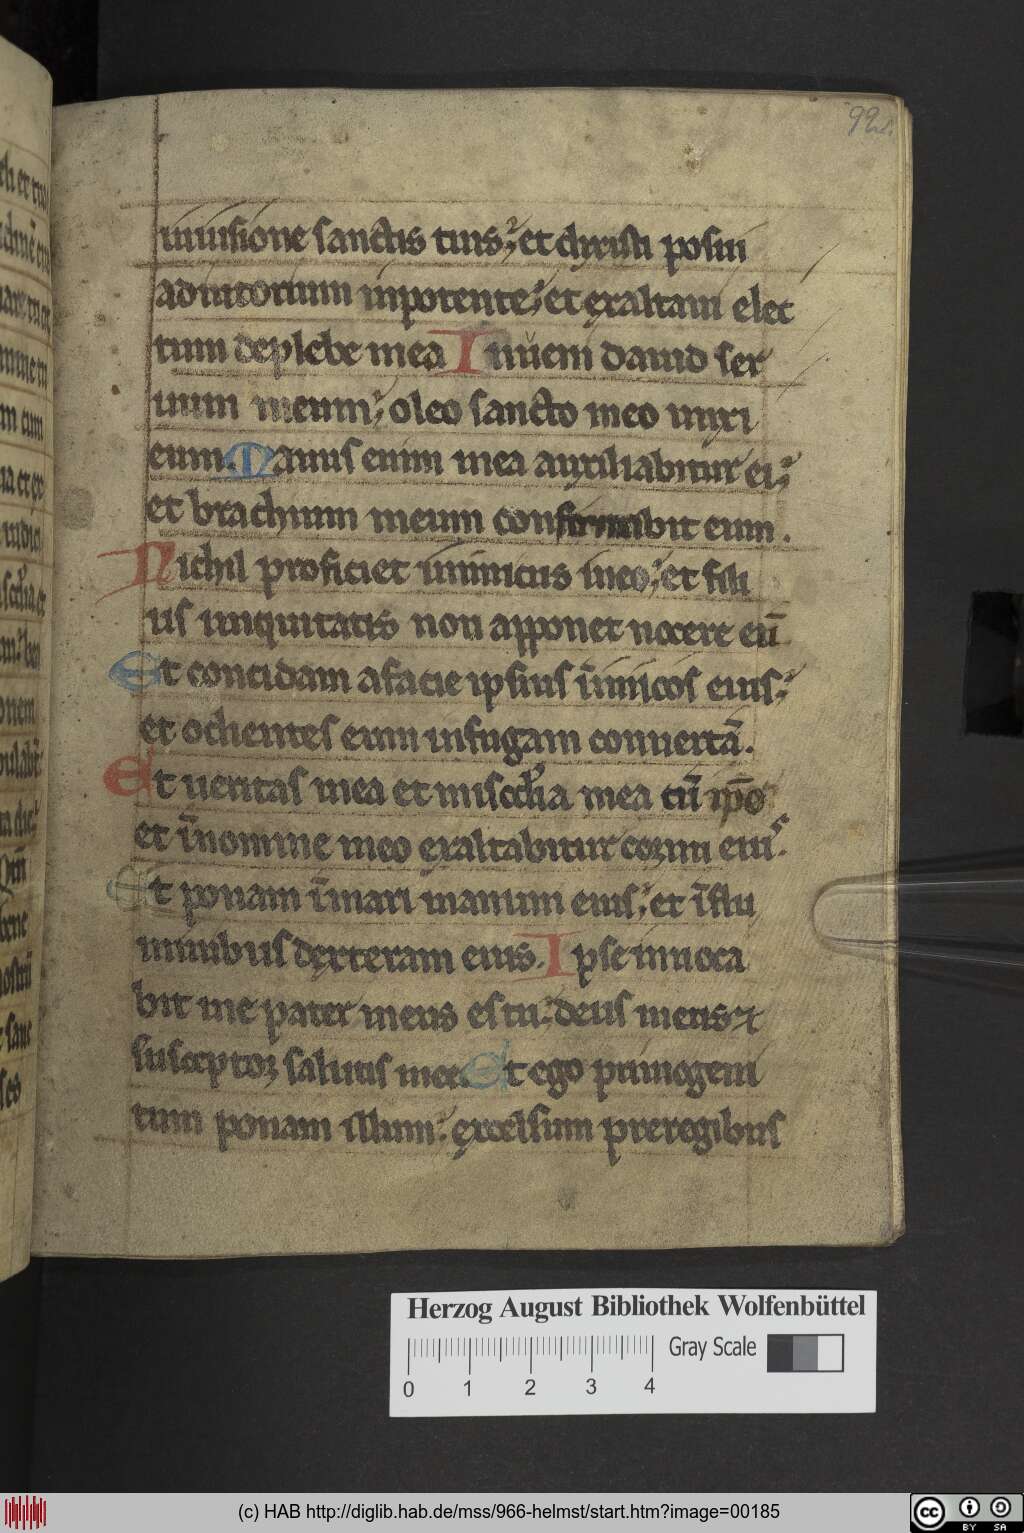 92r.
inuisione sanctis tuis; et christi posui
adiutorium inpotente; et exaltaui elec
tum deplebe mea Inueni dauid ser
uum meum; oleo sancto meo unxi
eum. Manus enim mea auxiliabitur ei;
et brachium meum confirmabit eum.
Nichil proficiet inimicus in eo; et fili
us iniquitatis non apponet nocere eū
Et concidam afacie ipsius īimicos eius;
et odientes eum infugam conuertā.
Et ueritas mea et misc̄dia mea cū ip̄o
et īnomine meo exaltabitur cornu eius.
Et ponam īmari manum eius; et īflu
minibus dexteram eius. Ipse inuoca
bit me pater meus es tu; deus meus ⁊
susceptor salutis mee. Et ego primogeni
tum ponam illum; excelsum preregibus
Herzog August Bibliothek Wolfenbüttel
Gray Scale
0 1 2 3 4
(c) HAB http://diglib.hab.de/mss/966-helmst/start.htm?image=00185
cc BY SA